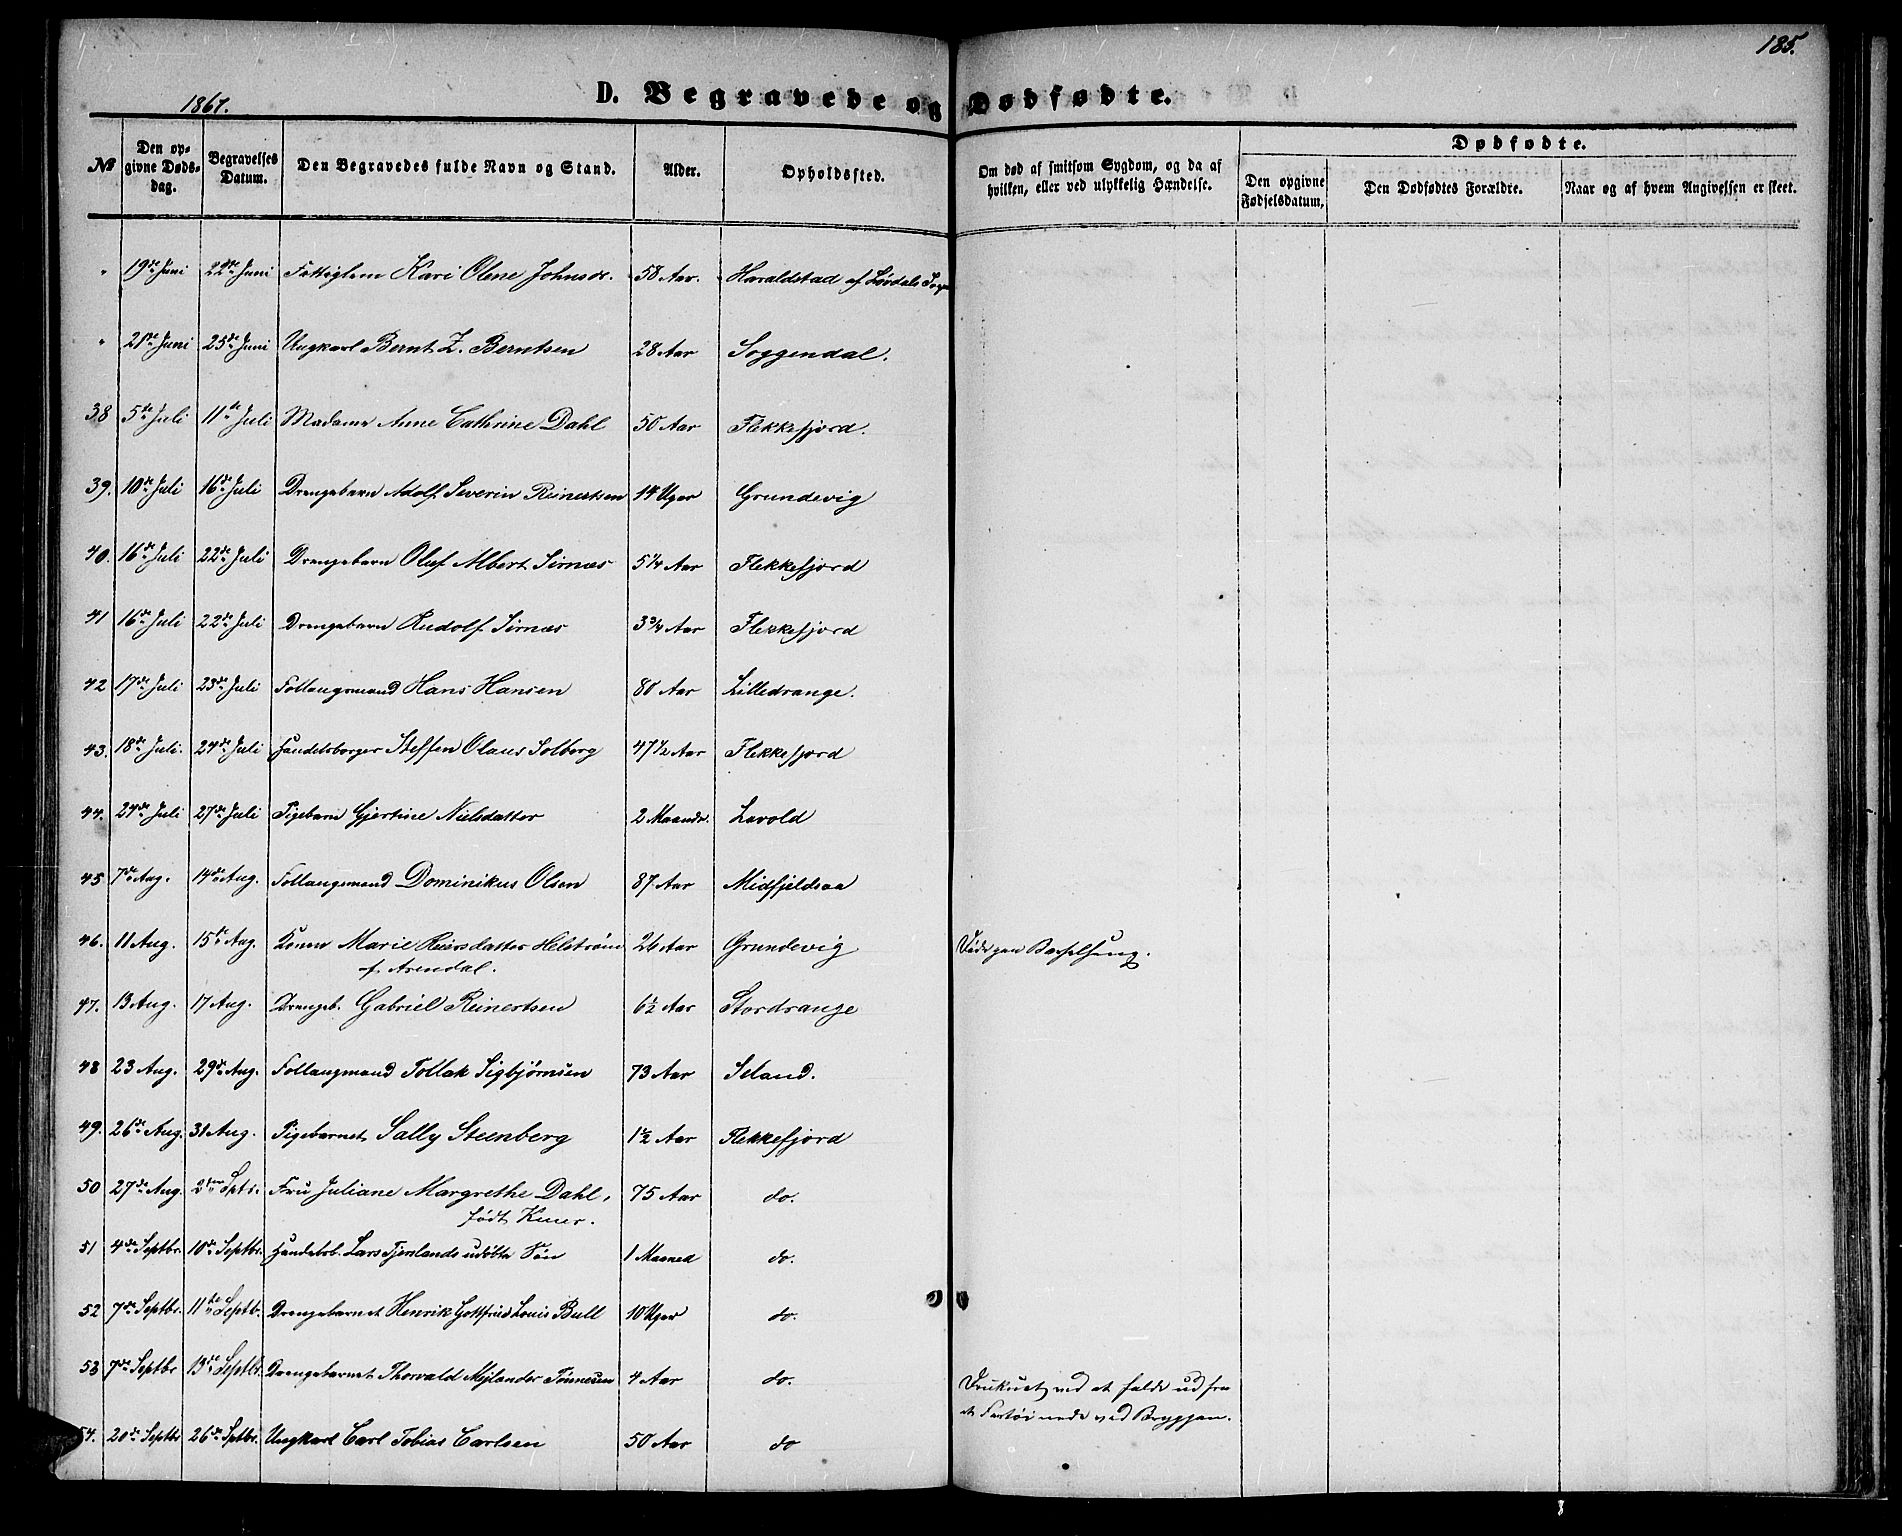 185.
1867.
D. Begravede og Dødfødte.
№
Den opgivne Dødsdag.
Begravelses Datum.
Den Begravedes fulde Navn og Stand.
Alder.
Opholdssted.
Om død af smitsom Sygdom, og da af hvilken, eller ved ulykkelig Hændelse.
Dødfødte.
Den opgivne Fødselsdatum.
Den Dødfødtes Forældre.
Naar og af hvem Angivelsen er skeet.
" 19de Juni 22de Juni Fattiglem Kari Olene Johnsdr. 58 Aar. Haraldstad af Lovdals Sogn
" 21de Juni 25de Juni Ungkarl Bernt Z. Berntsen 28 Aar Soggendal.
38 5te Juli 11te Juli Madame Anne Cathrine Dahl 50 Aar Flekkefjord.
39. 10de Juli 16de Juli Drengebarn Adolf Severin Reinertsen 14 Uger Grundevig
40. 16de Juli 22de Juli Drengebarn Oluf Albert Sirnæs 5 1/4 Aar Flekkefjord
41 16de Juli 22de Juli Drengebarn Rudolf Sirnæs 3 3/4 Aar Flekkefjord
42 17de Juli 23de Juli Follaugsmand Hans Hansen 80 Aar Lilledrange.
43. 18de Juli. 24de Juli Handelsborger Steffen Olaus Solberg 47 1/2 Aar Flekkefjord
44. 24de Juli 27de Juli Pigebarn Gjertine Nielsdatter 2 Maandr. Lavold
45 7de Aug. 14de Aug. Follaugsmand Dominikus Olsen 87 Aar Midfjeldsaa
46. 11 Aug. 15de Aug. Konen Marie Reiersdatter Helstrøm 26 Aar Grundevig Døde paa Barselseng.
af Arendal.
47. 13 Aug. 17 Aug. Drengeb. Gabriel Reinertsen 6 1/2 Aar Stordrange
48 23 Aug. 29de Aug. Follaugmand Tollak Sigbjørnsen 73 Aar Seland.
49. 26de Aug. 31 Aug. Pigebarnet Sally Steenberg 1 1/2 Aar Flekkefjord
50 27de Aug. 2den Septr. Fru Juliane Margrethe Dahl, 75 Aar do.
født
51 4de Septbr. 10de Septbr. Handelsb. Lars Tjerslands udøbte Søn 1 Maaned do.
52 7de Septbr. 11te Septbr. Drengebarnet Henrik Gottfried Louis Bull 10 Uger do.
53 7de Septbr 13de Septbr. Drengebarnet Thorvald Mejlander Tønnesen 4 Aar do. Druknet ved at falde ud fra
et Fartøi nede ved Bryggen.
54. 20de Septbr 26de Septbr. Ungkarl Carl Tobias Carlsen 50 Aar do